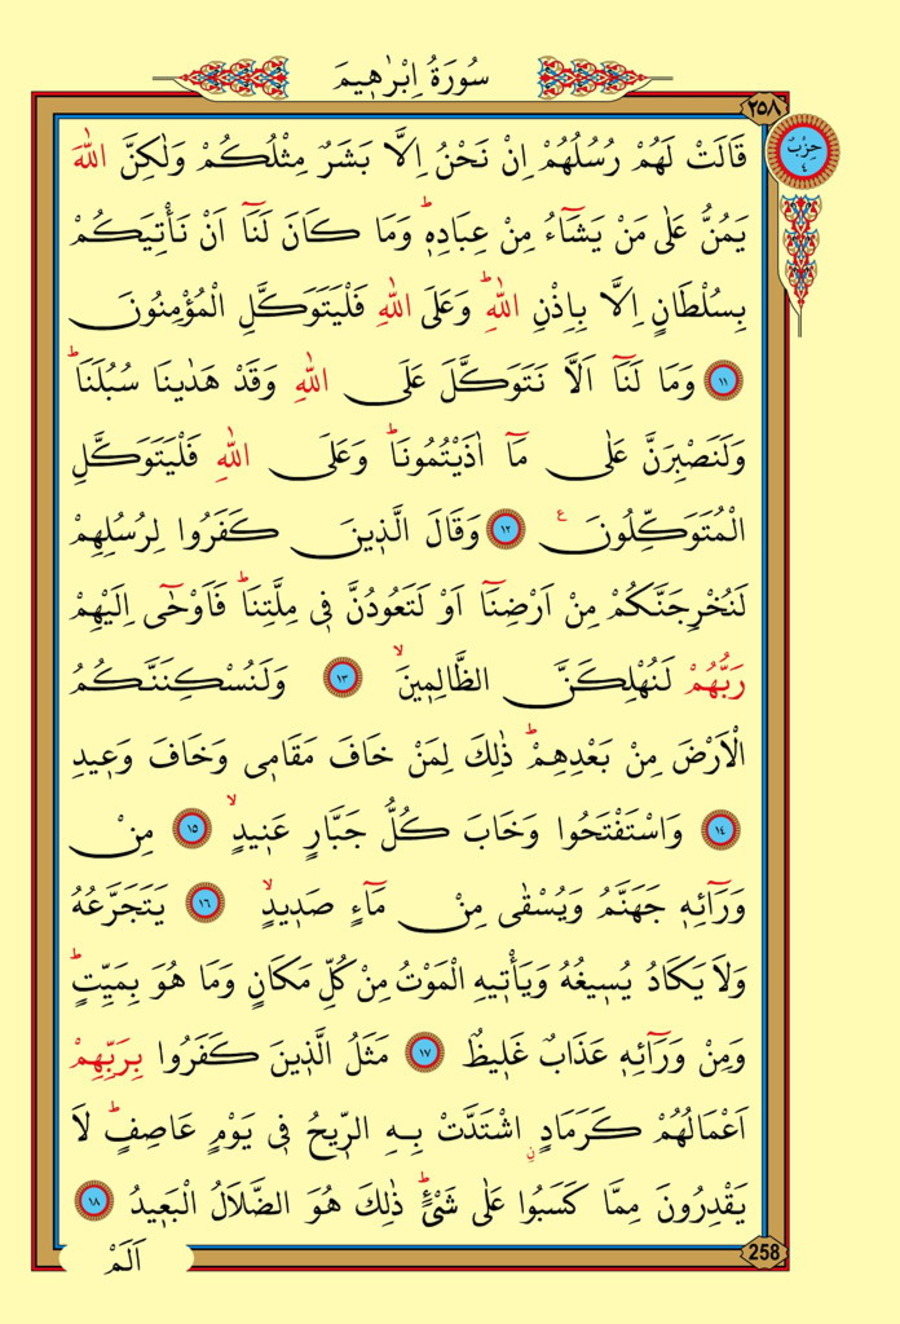 سُورَةُ اِبْرٰه۪يمَ
٢٥٨
حِزْبٌ
٤
قَالَتْ لَهُمْ رُسُلُهُمْ اِنْ نَحْنُ اِلَّا بَشَرٌ مِثْلُكُمْ وَلٰكِنَّ اللّٰهَ
يَمُنُّ عَلٰى مَنْ يَشَٓاءُ مِنْ عِبَادِه۪ۜ وَمَا كَانَ لَنَٓا اَنْ نَأْتِيَكُمْ
بِسُلْطَانٍ اِلَّا بِاِذْنِ اللّٰهِۜ وَعَلَى اللّٰهِ فَلْيَتَوَكَّلِ الْمُؤْمِنُونَ
﴿١١﴾ وَمَا لَنَٓا اَلَّا نَتَوَكَّلَ عَلَى اللّٰهِ وَقَدْ هَدٰينَا سُبُلَنَاۜ
وَلَنَصْبِرَنَّ عَلٰى مَٓا اٰذَيْتُمُونَاۜ وَعَلَى اللّٰهِ فَلْيَتَوَكَّلِ
الْمُتَوَكِّلُونَ ع ﴿١٢﴾ وَقَالَ الَّذ۪ينَ كَفَرُوا لِرُسُلِهِمْ
لَنُخْرِجَنَّكُمْ مِنْ اَرْضِنَٓا اَوْ لَتَعُودُنَّ ف۪ي مِلَّتِنَاۜ فَاَوْحٰٓى اِلَيْهِمْ
رَبُّهُمْ لَنُهْلِكَنَّ الظَّالِم۪ينَۙ ﴿١٣﴾ وَلَنُسْكِنَنَّكُمُ
الْاَرْضَ مِنْ بَعْدِهِمْۜ ذٰلِكَ لِمَنْ خَافَ مَقَام۪ي وَخَافَ وَع۪يدِ
﴿١٤﴾ وَاسْتَفْتَحُوا وَخَابَ كُلُّ جَبَّارٍ عَن۪يدٍۙ ﴿١٥﴾ مِنْ
وَرَٓائِه۪ جَهَنَّمُ وَيُسْقٰى مِنْ مَٓاءٍ صَد۪يدٍۙ ﴿١٦﴾ يَتَجَرَّعُهُ
وَلَا يَكَادُ يُس۪يغُهُ وَيَأْت۪يهِ الْمَوْتُ مِنْ كُلِّ مَكَانٍ وَمَا هُوَ بِمَيِّتٍۜ
وَمِنْ وَرَٓائِه۪ عَذَابٌ غَل۪يظٌ ﴿١٧﴾ مَثَلُ الَّذ۪ينَ كَفَرُوا بِرَبِّهِمْ
اَعْمَالُهُمْ كَرَمَادٍۨ اشْتَدَّتْ بِهِ الرّ۪يحُ ف۪ي يَوْمٍ عَاصِفٍۜ لَا
يَقْدِرُونَ مِمَّا كَسَبُوا عَلٰى شَيْءٍۜ ذٰلِكَ هُوَ الضَّلَالُ الْبَع۪يدُ ﴿١٨﴾
258
اَلَمْ